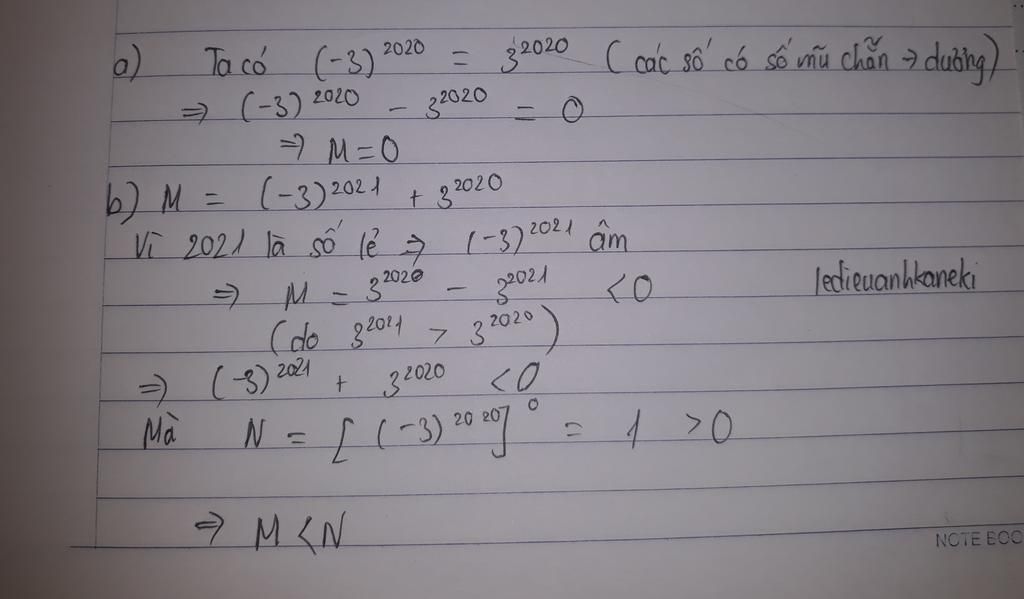 a) Ta có (-3)^2020 = 3^2020 (các số có số mũ chẵn → dương)
⇒ (-3)^2020 - 3^2020 = 0
⇒ M = 0
b) M = (-3)^2021 + 3^2020
Vì 2021 là số lẻ ⇒ (-3)^2021 âm
⇒ M = 3^2020 - 3^2021 < 0
ledieuanhkaneki
(do 3^2021 > 3^2020)
⇒ (-3)^2021 + 3^2020 < 0
Mà N = [(-3)^2020]^0 = 1 > 0
⇒ M < N
NOTE BOO